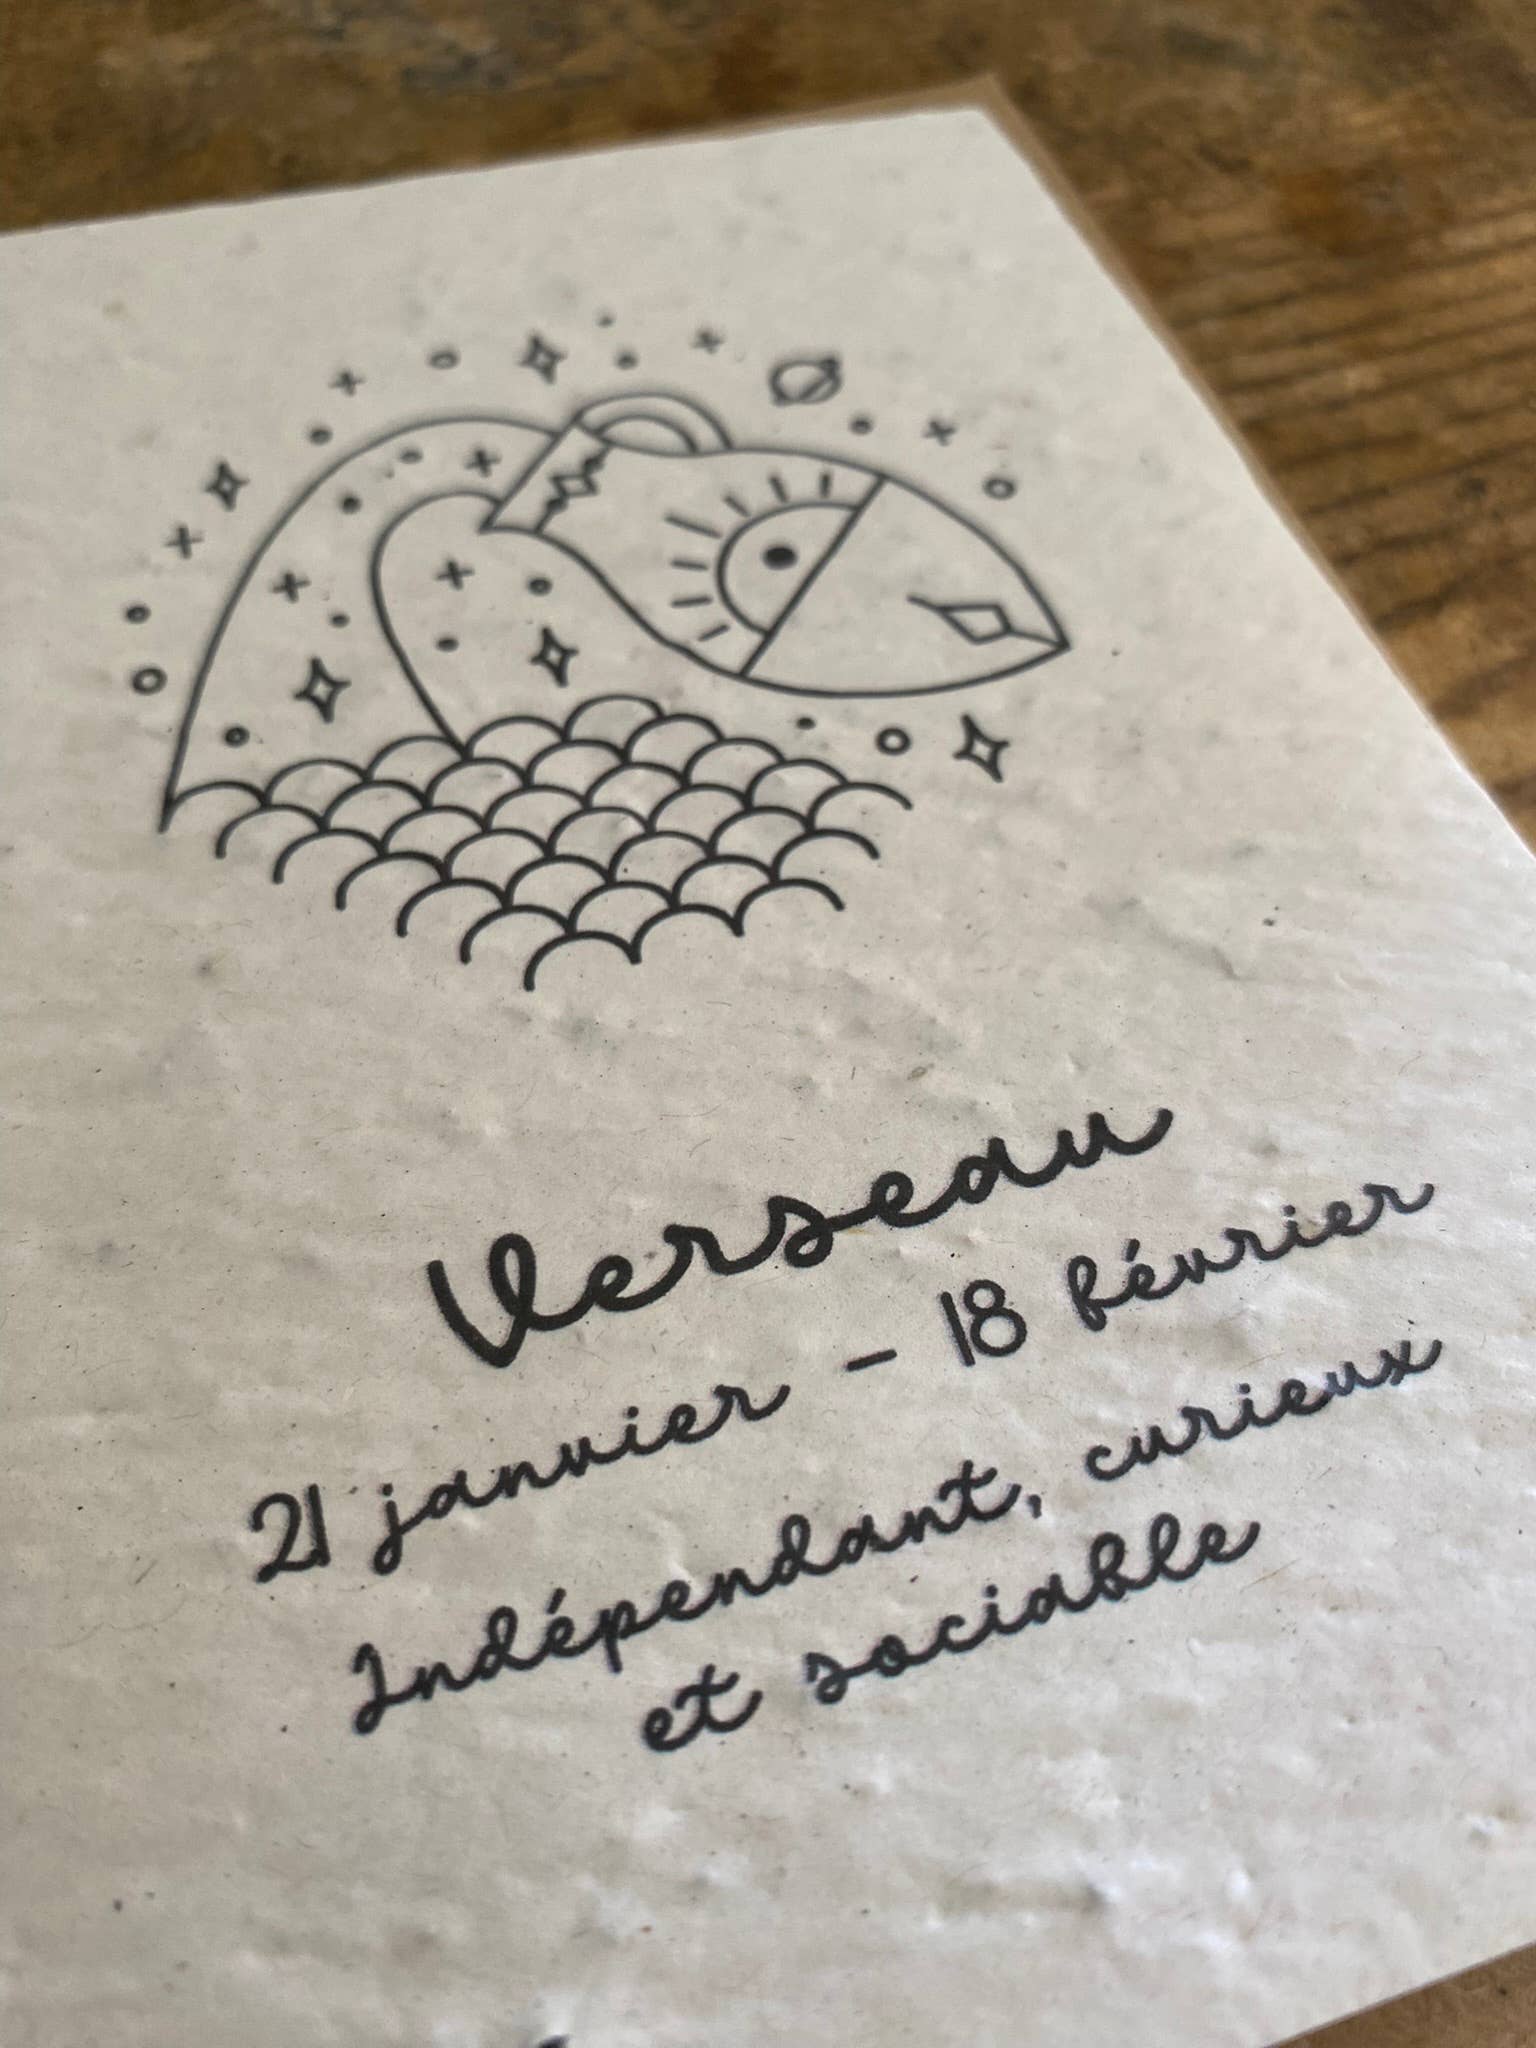 Verseau
21 janvier - 18 février
Indépendant, curieux
et sociable